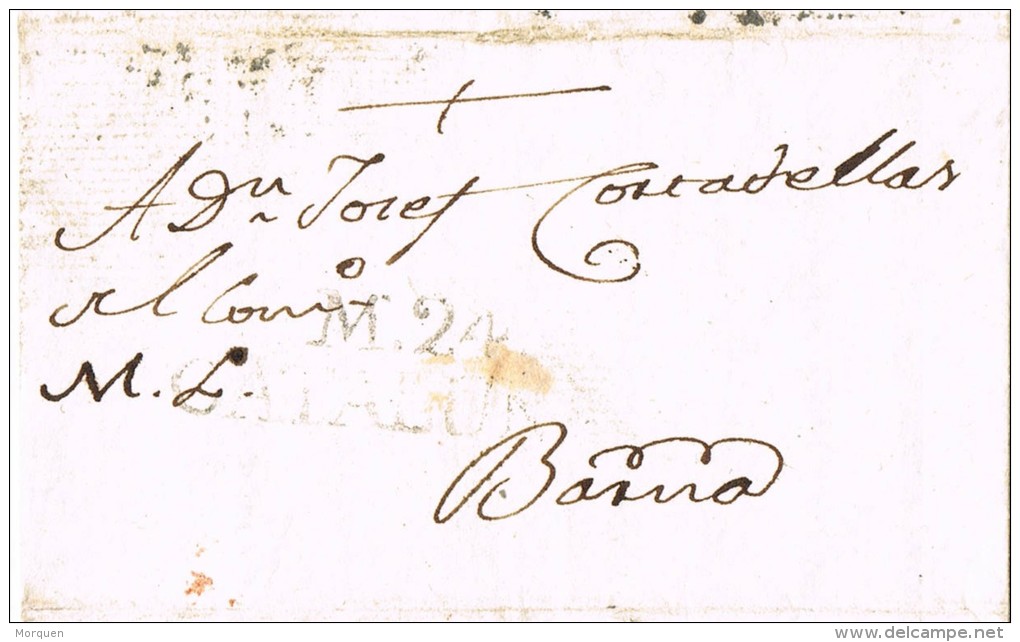 A Dn Josef Cortadellas
el Como
M. 24
M. L.
CATALUÑ
Barna
Morquen
delcampe.net